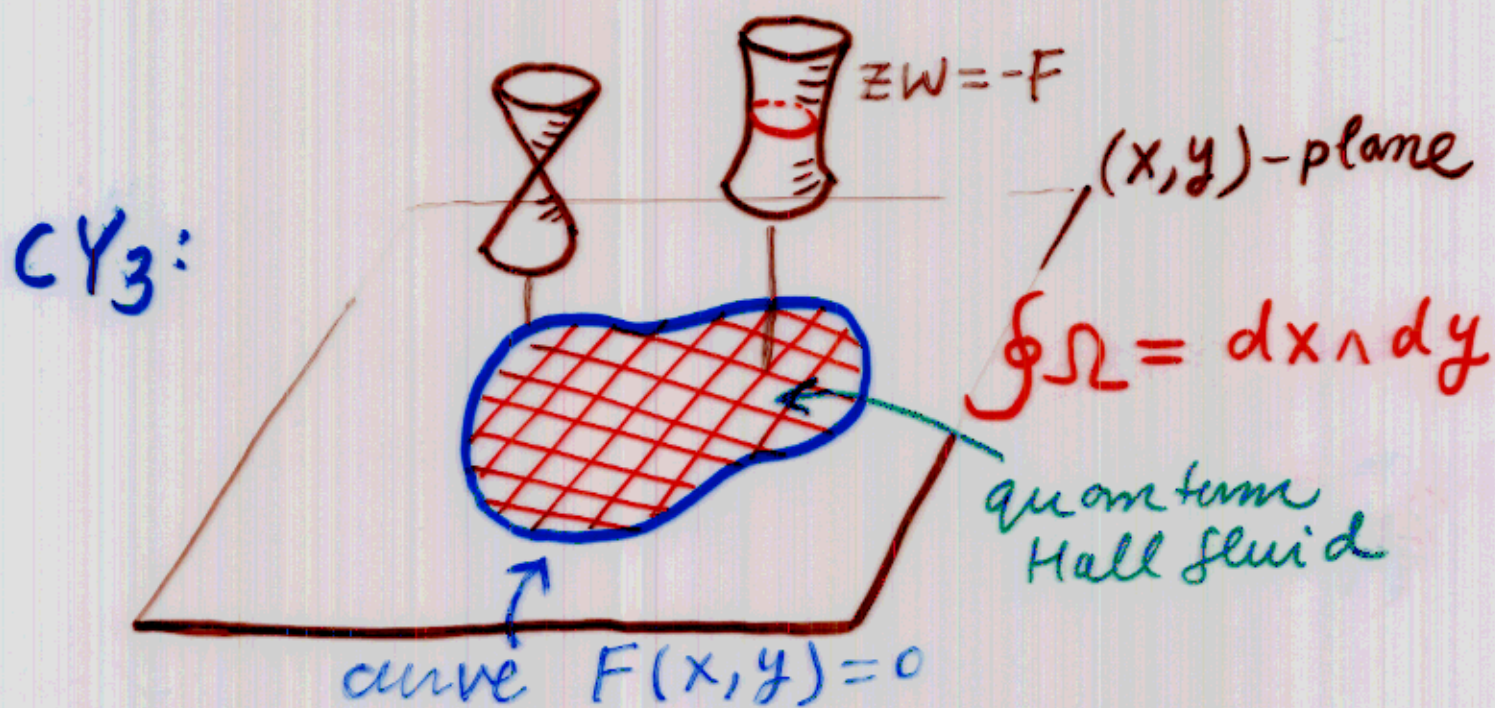 zw = -F
(x,y)-plane
CY₃:
∮Ω = dx∧dy
quantum
Hall fluid
curve F(x,y)=0